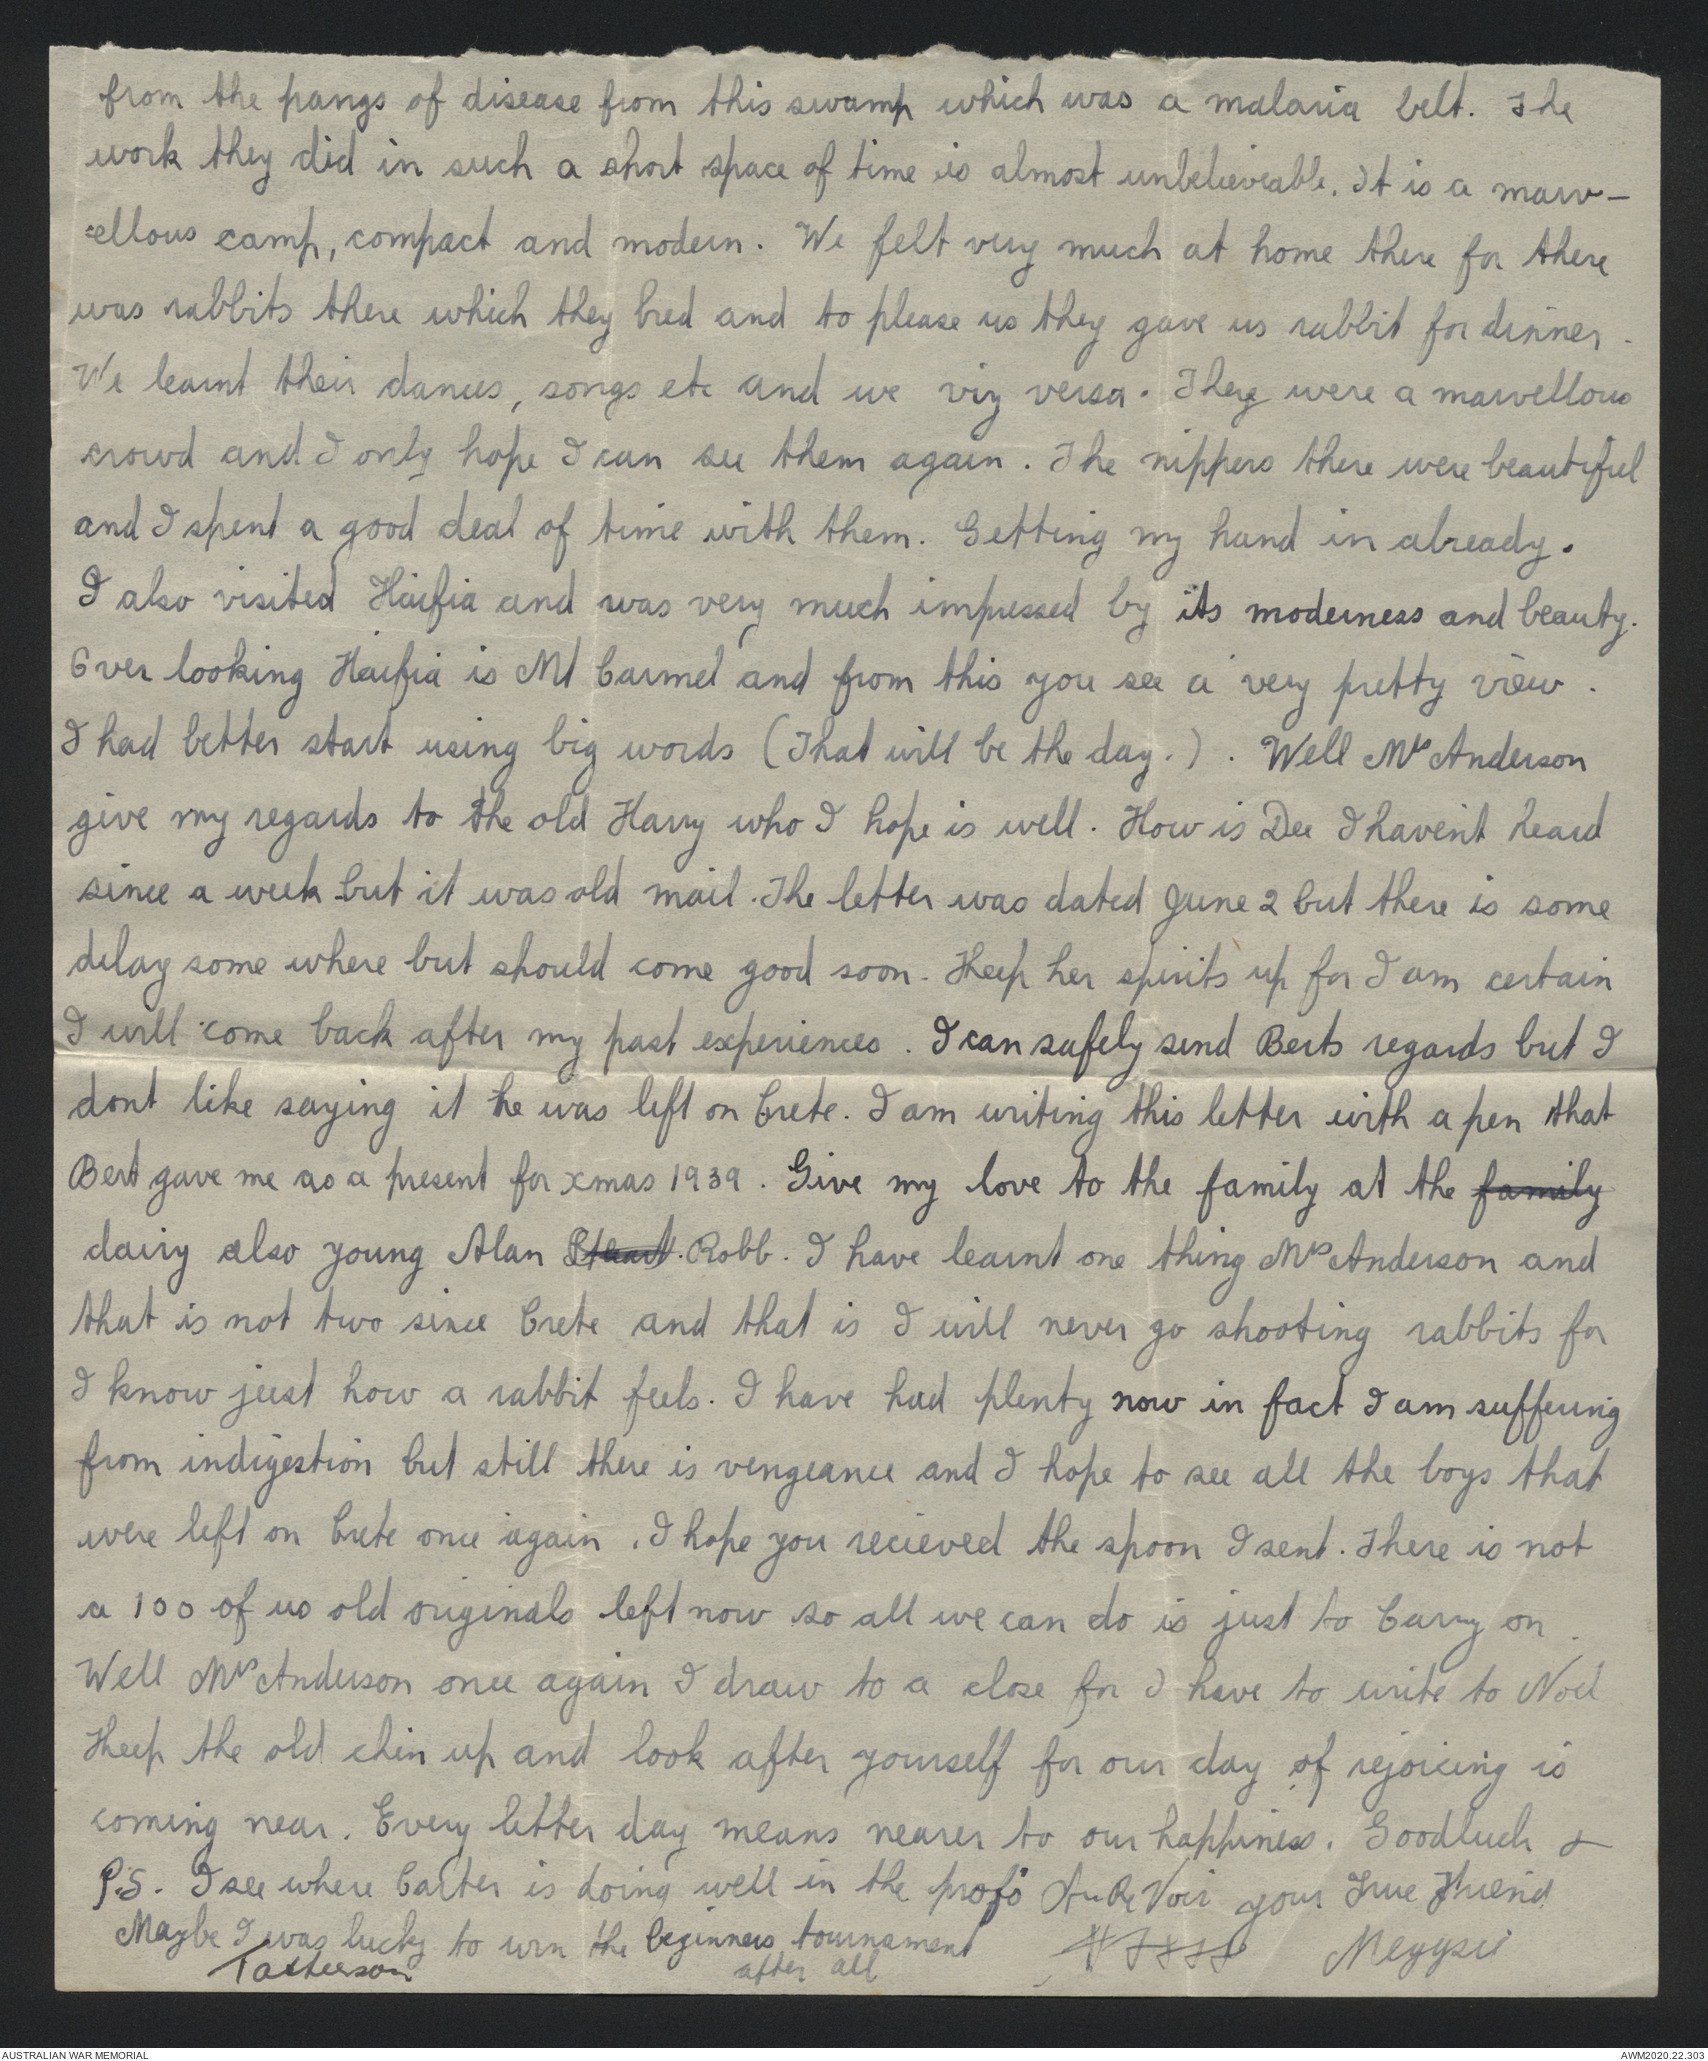 from the pangs of disease from this swamp which was a malaria belt. The
work they did in such a short space of time is almost unbelieveable. It is a marv-
=ellous camp, compact and modern. We felt very much at home there for there
was rabbits there which they bred and to please us they gave us rabbit for dinner.
We learnt their dances, songs etc and we viz versa. They were a marvellous
crowd and I only hope I can see them again. The nippers there were beautiful
and I spent a good deal of time with them. Getting my hand in already.
I also visited Haifia and was very much impressed by its moderness and beauty.
Over looking Haifia is Mt Carmel and from this you see a very pretty view.
I had better start using big words (That will be the day.). Well Mrs Anderson
give my regards to the old Harry who I hope is well. How is Dee I haven't heard
since a week but it was old mail. The letter was dated June 2 but there is some
delay some where but should come good soon. Keep her spirits up for I am certain
I will come back after my past experiences. I can safely send Berts regards but I
dont like saying it he was left on Crete. I am writing this letter with a pen that
Bert gave me as a present for xmas 1939. Give my love to the family at the family
dairy also young Alan Robb. I have learnt one thing Mrs Anderson and
that is not two since Crete and that is I will never go shooting rabbits for
I know just how a rabbit feels. I have had plenty now in fact I am suffering
from indigestion but still there is vengeance and I hope to see all the boys that
were left on Crete once again. I hope you recieved the spoon I sent. There is not
a 100 of us old originals left now so all we can do is just to Carry on.
Well Mrs Anderson once again I draw to a close for I have to write to Noel
Keep the old chin up and look after yourself for our day of rejoicing is
coming near. Every letter day means nearer to our happiness. Goodluck &
P.S. I see where Carter is doing well in the profs Au Re Voir your True Friend
Maybe I was lucky to win the beginners tournament Meggsie
after all
AUSTRALIAN WAR MEMORIAL
AWM2020.22.303